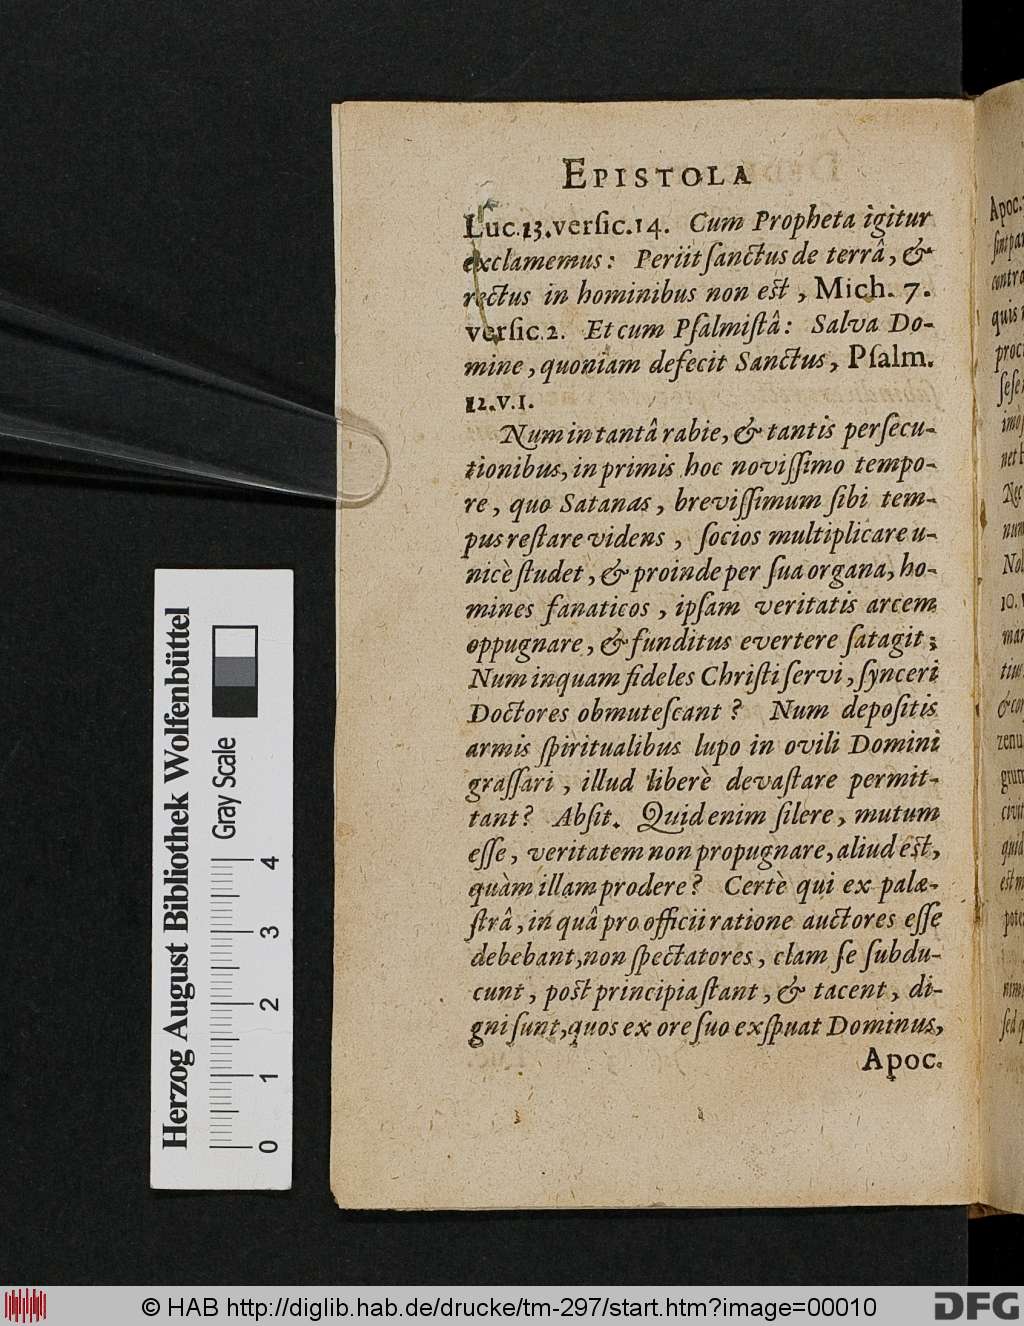 EPISTOLA
Luc.13.verſic.14. Cum Propheta igitur
exclamemus: Periit ſanctus de terrâ, &
rectus in hominibus non eſt, Mich. 7.
verſic.2. Et cum Pſalmiſtâ: Salva Do-
mine, quoniam defecit Sanctus, Pſalm.
12.v.1.
Num in tantâ rabie, & tantis perſecu-
tionibus, in primis hoc noviſſimo tempo-
re, quo Satanas, breviſſimum ſibi tem-
pus reſtare videns, ſocios multiplicare u-
nicè ſtudet, & proinde per ſua organa, ho-
mines fanaticos, ipſam veritatis arcem
oppugnare, & funditus evertere ſatagit;
Num inquam fideles Chriſti ſervi, ſynceri
Doctores obmuteſcant? Num depoſitis
armis ſpiritualibus lupo in ovili Domini
graſſari, illud liberè devaſtare permit-
tant? Abſit. Quid enim ſilere, mutum
eſſe, veritatem non propugnare, aliud eſt,
quàm illam prodere? Certè qui ex palæ-
ſtrâ, in quâ pro officii ratione auctores eſſe
debebant, non ſpectatores, clam ſe ſubdu-
cunt, poſt principia ſtant, & tacent, di-
gni ſunt, quos ex ore ſuo exſpuat Dominus,
Apoc.
Apoc.
contra
quis
ſeſe
Nec
10.
zenu
Herzog August Bibliothek Wolfenbüttel
Gray Scale
0 1 2 3 4
© HAB http://diglib.hab.de/drucke/tm-297/start.htm?image=00010
DFG